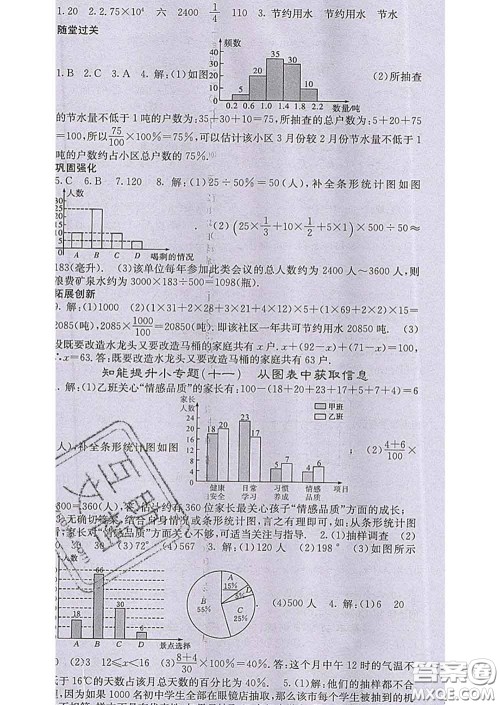 1.20 2.2.75×10⁴ 六 2400 1/4 110 3.节约用水 节约用水 节水
随堂过关
频数
1.B 2.C 3.A 4.解:(1)如图 (2)所抽查
40
30
20
10
5 20 35 30 10
0.2 0.6 1.0 1.4 1.8 2.2 数量/吨
的节水量不低于1吨的户数为:35+30+10=75,所抽查的总户数为:5+20+75
=100,所以75/100×100%=75%,可以估计该小区3月份较2月份节水量不低于
1吨的户数约占小区总户数的75%.
巩固强化
5.C 6.B 7.120 8.解:(1)25÷50%=50(人),补全条形统计图如图
人数
30
25
20
15
10
5
0 A B C D 喝剩的情况
. (2)(25×1/3+10×1/2+5×1)×500÷50≈
183(毫升). (3)该单位每年参加此类会议的总人数约为2400人~3600人,则
浪费矿泉水约为3000×183÷500=1098(瓶).
拓展创新
9.解:(1)100 (2)(1×31+2×28+3×21+4×12)×5+(1×69+2×2)×15=
2085(吨),2085×1000/100=20850(吨).即该社区一年共可节约用水20850吨. (3)
设既要改造水龙头又要改造马桶的家庭共有x户.∵x+(92-x)+(71-x)=100,
∴x=63.答:既要改造水龙头又要改造马桶的家庭共有63户.
知能提升小专题(十一) 从图表中获取信息
.解:(1)乙班关心“情感品质”的家长有:100-(18+20+23+17+5+7+4)=6
家长
人数
甲班
乙班
(人),补全条形统计图如图 ; (2)4+6/100×
18 20 23 17 5 7 4 6
健康安全 日常学习 习惯养成 情感品质 项目
3600=360(人),估计约有360位家长最关心孩子“情感品质”方面的成长;
(3)无确切答案,结合自身情况或条形统计图,言之有理即可,如:从条形统计图
看,家长对“情感品质”方面关心不够,可适当关注与指导. 2.(1)抽样调查 (2)
36 (3)72° (4)567 3.解:(1)120人 (2)198° (3)如图所示
人数
18 66 30 6
0 A B C D 景点选择
A 15%
5%
B 55%
C 25%
(4)500人 4.解:(1)6 20
(2)3 12≤x<16 (3)8+4/30×100%=40%.答:这个月中午12时的气温不
低于16℃的天数占该月总天数的百分比为40%. 5.解:(1)他们的抽样都不合
理,因为如果1000名初中学生全部在眼镜店抽取,那么该市每个学生被抽到的机
答案圈
MXQE.COM